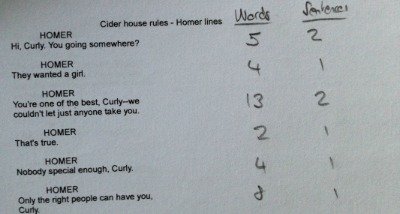 Cider house rules - Homer lines Words Sentences
HOMER
Hi, Curly. You going somewhere? 5 2
HOMER
They wanted a girl. 4 1
HOMER
You're one of the best, Curly--we 13 2
couldn't let just anyone take you.
HOMER
That's true. 2 1
HOMER
Nobody special enough, Curly. 4 1
HOMER
Only the right people can have you, 8 1
Curly.